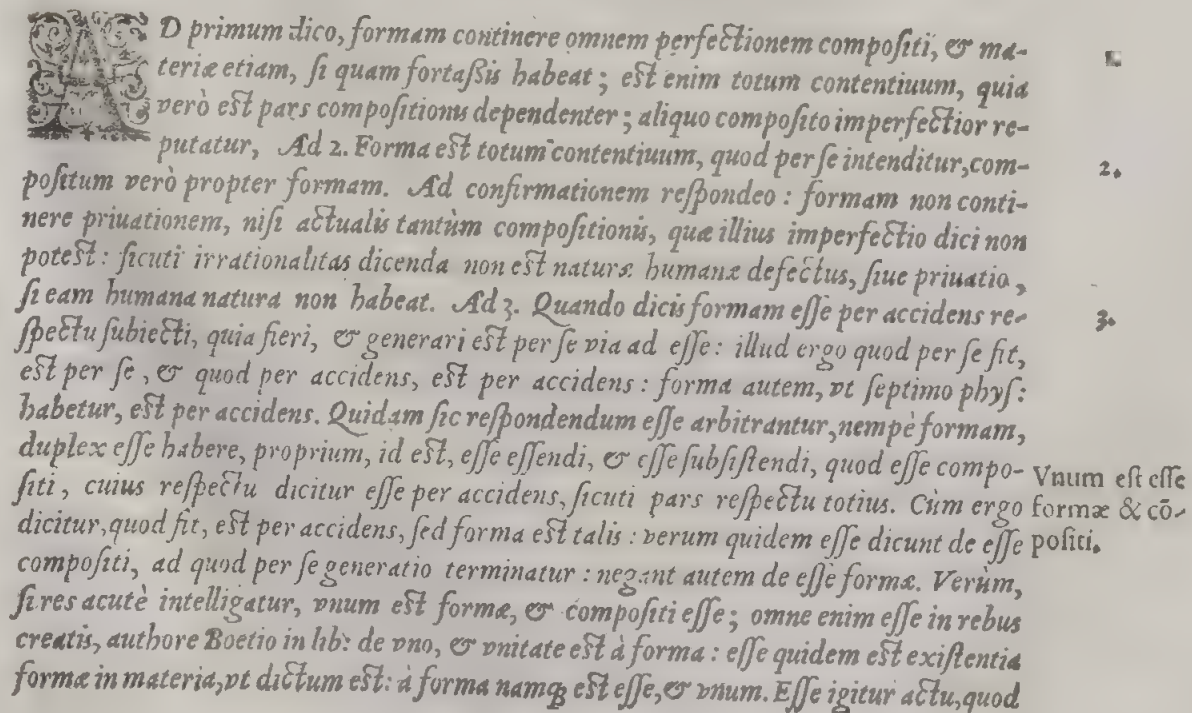 AD primum dico, formam continere omnem perfectionem compositi, & ma-
teriæ etiam, si quam fortaßis habeat; est enim totum contentiuum, quia
verò est pars compositionis dependenter; aliquo composito imperfectior re-
putatur, Ad 2. Forma est totum contentiuum, quod per se intenditur, com-
2.
positum verò propter formam. Ad confirmationem respondeo: formam non conti-
nere priuationem, nisi actualis tantùm compositionis, quæ illius imperfectio dici non
potest: sicuti irrationalitas dicenda non est naturæ humanæ defectus, siue priuatio,
si eam humana natura non habeat. Ad 3. Quando dicis formam esse per accidens re-
3.
spectu subiecti, quia fieri, & generari est per se via ad esse: illud ergo quod per se fit,
est per se, & quod per accidens, est per accidens: forma autem, vt septimo phys:
habetur, est per accidens. Quidam sic respondendum esse arbitrantur, nempè formam,
duplex esse habere, proprium, id est, esse essendi, & esse subsistendi, quod esse compo-
siti, cuius respectu dicitur esse per accidens, sicuti pars respectu totius. Cùm ergo
dicitur, quod fit, est per accidens, sed forma est talis: verum quidem esse dicunt de esse
Vnum est esse
formæ & cō-
positi.
compositi, ad quod per se generatio terminatur: negant autem de esse formæ. Verùm,
si res acutè intelligatur, vnum est formæ, & compositi esse; omne enim esse in rebus
creatis, authore Boetio in lib: de vno, & vnitate est à forma: esse quidem est existentia
formæ in materia, vt dictum est: à forma namq; est esse, & vnum. Esse igitur actu, quod